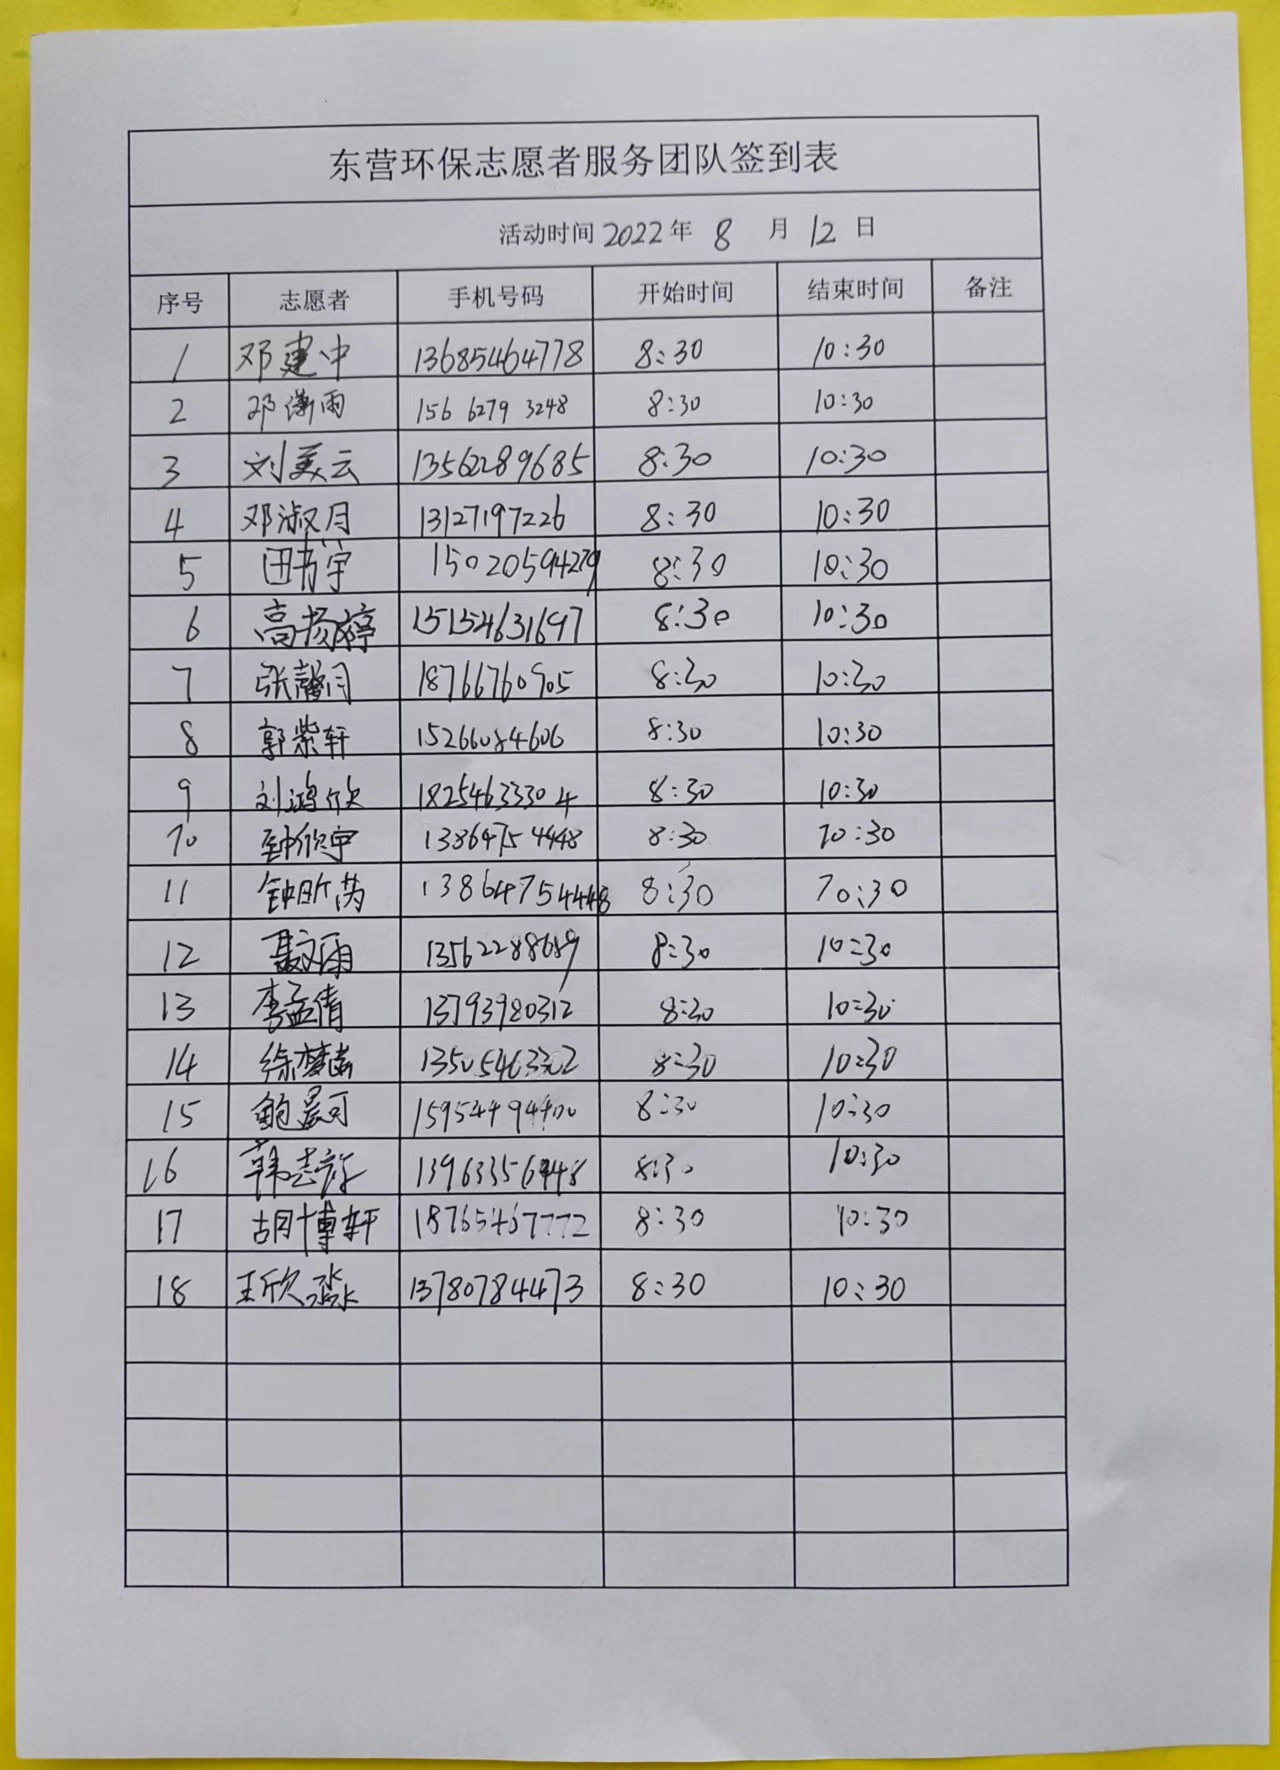 东营环保志愿者服务团队签到表
活动时间 2022年 8 月 12 日
序号 志愿者 手机号码 开始时间 结束时间 备注
1 邓建中 13685464778 8:30 10:30
2 邓潇雨 156 6279 3248 8:30 10:30
3 刘美云 13562289685 8:30 10:30
4 邓淑月 13127197226 8:30 10:30
5 田 宇 15020594279 8:30 10:30
6 高扬婷 15154631697 8:30 10:30
7 张馨月 18766760905 8:30 10:30
8 郭紫轩 15266084606 8:30 10:30
9 刘鸿欣 18254633304 8:30 10:30
10 钟欣宇 13864754448 8:30 10:30
11 钟昕芮 13864754448 8:30 10:30
12 聂文雨 13562288689 8:30 10:30
13 李孟倩 13793980312 8:30 10:30
14 徐梦 13505463302 8:30 10:30
15 鲍晨可 15954494400 8:30 10:30
16 韩志 8:30 10:30
17 胡博轩 18765467772 8:30 10:30
18 王欣淼 13780784473 8:30 10:30